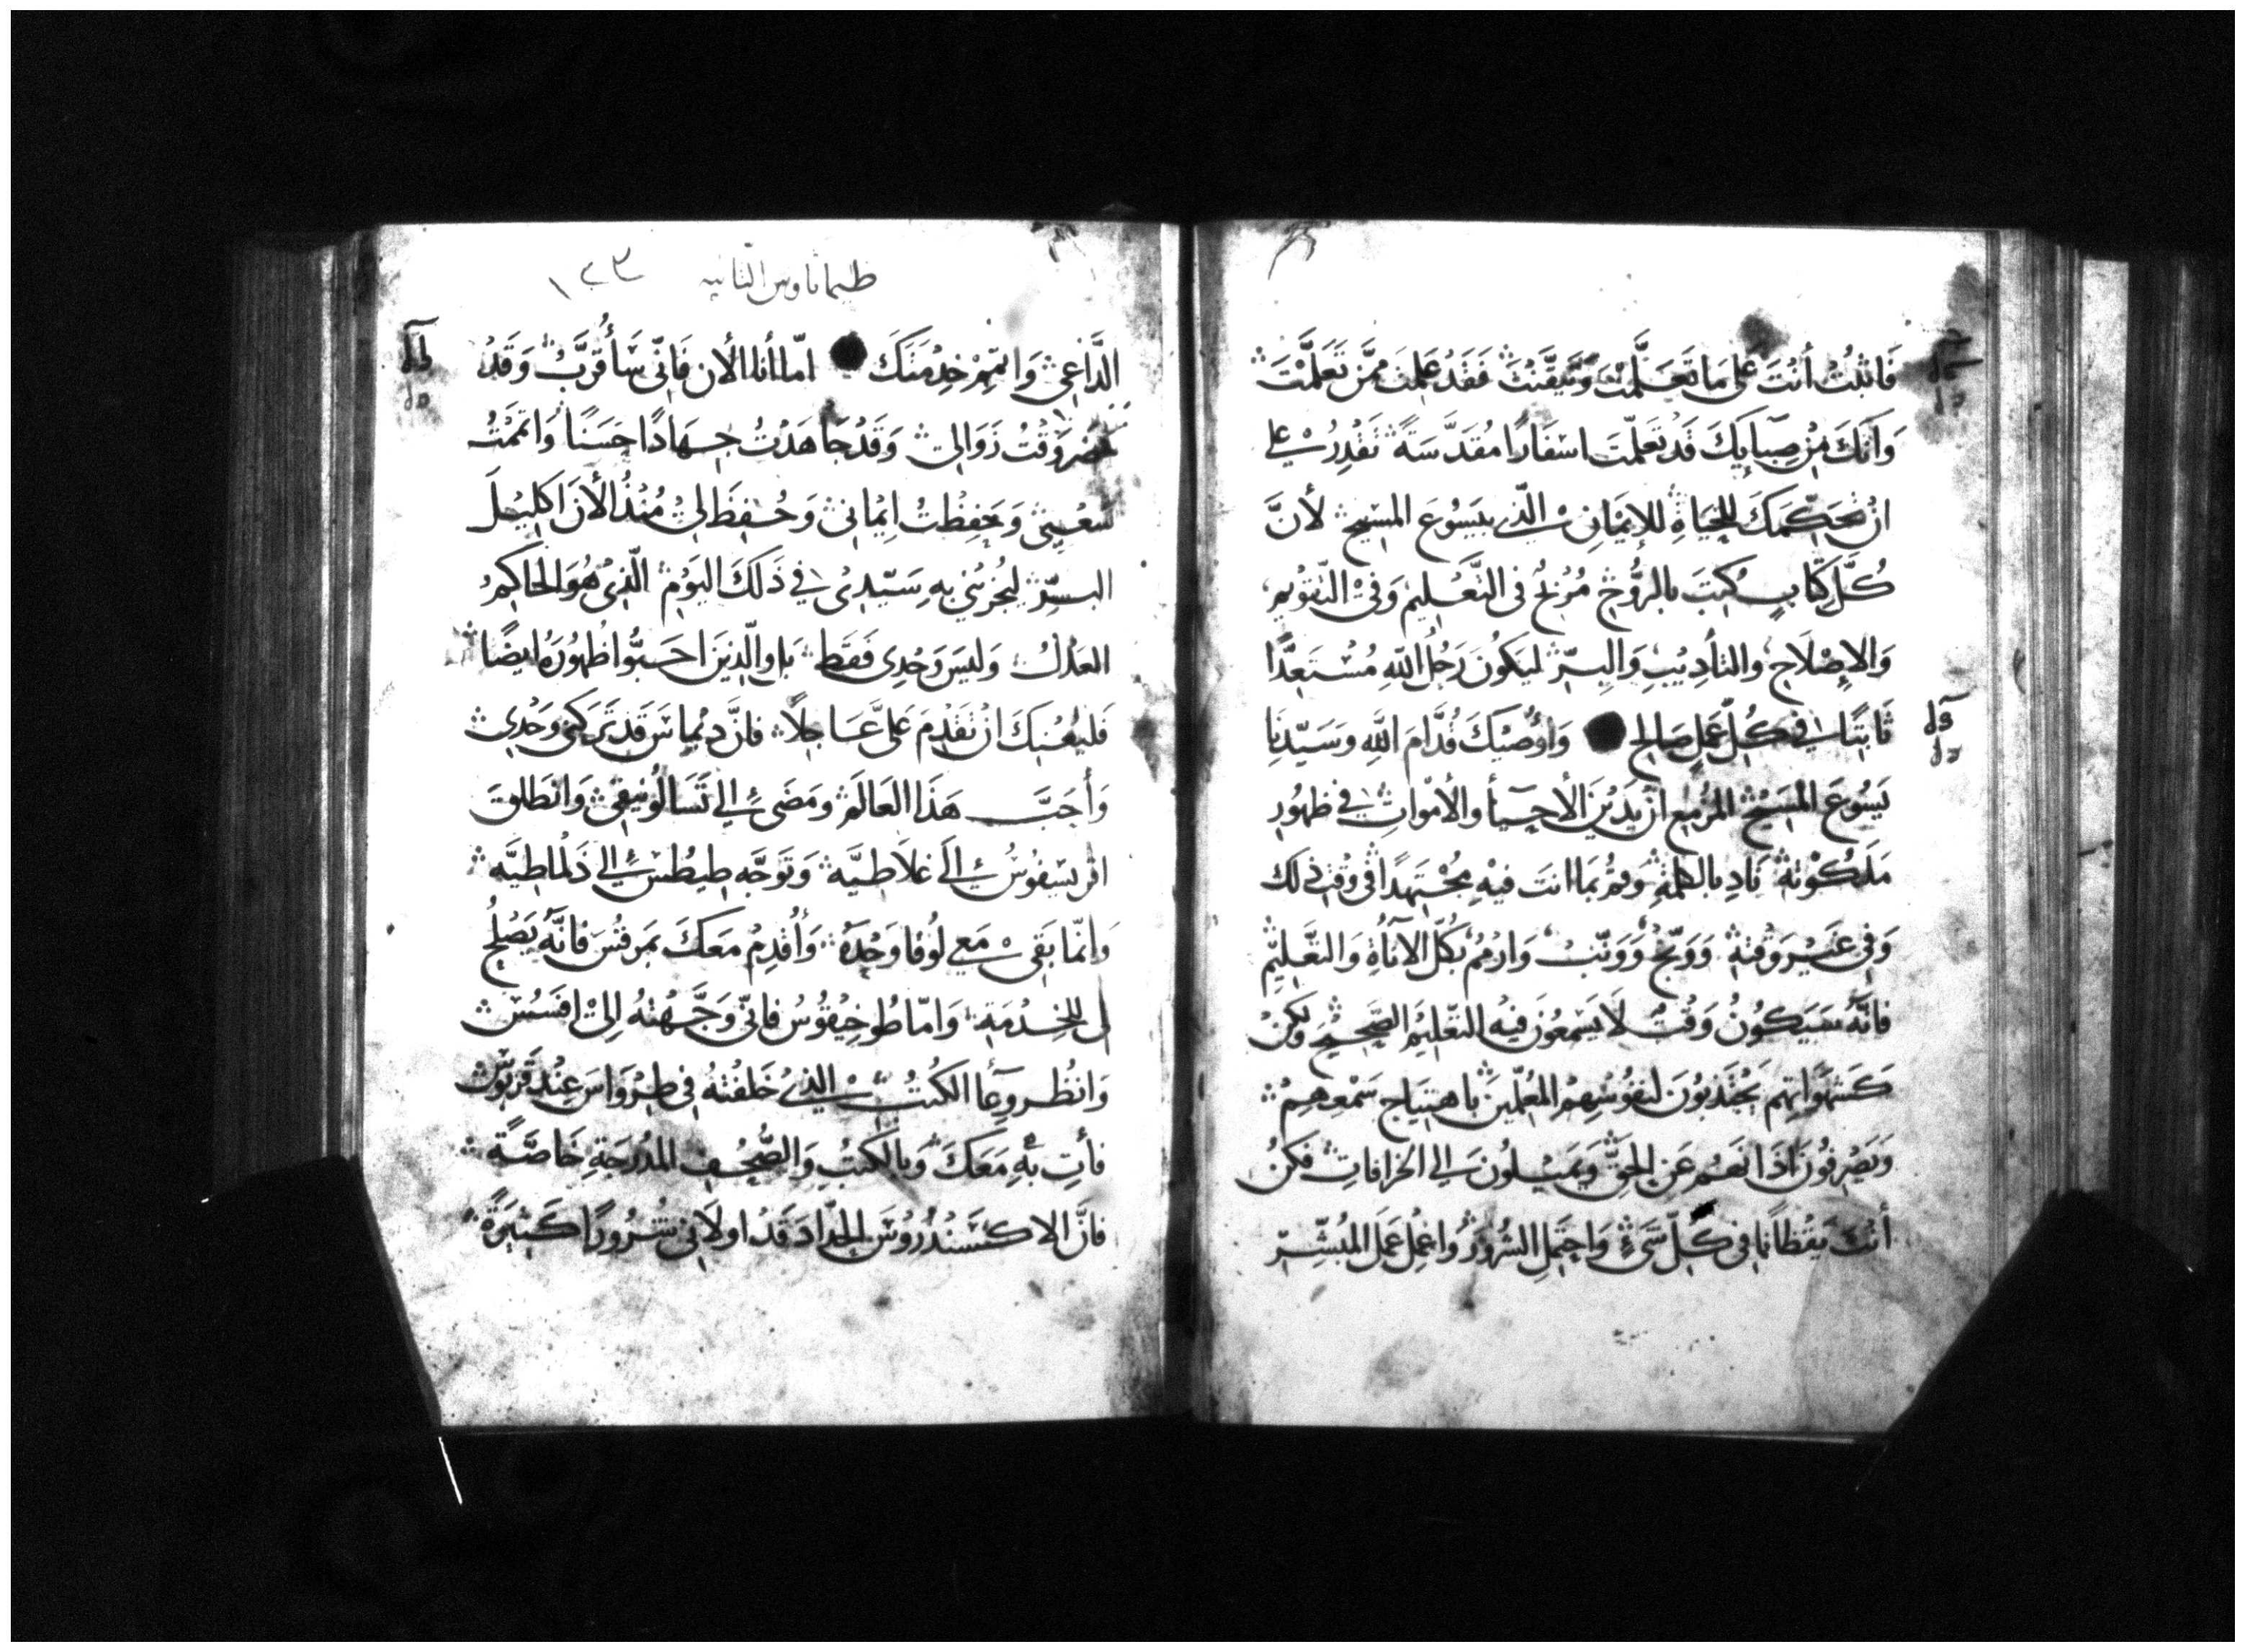 فَاثبُتْ أنْتَ عَلى مَا تَعَلَّمْتَ وَتَيَقَّنْتَ فَقَدْ عَلِمتَ مِمَّن تَعَلَّمْتَ
وَانَّكَ مِنْ صِبَايكَ قَد تَعَلّمتَ اسْفَارًا مُقدَّسَةً تَقْدِرُ عَلى
انْ تُحَكِّمَكَ لِلحَيَاةِ للإيْمَانِ الّذي بيَسُوعَ المسِيحِ لأنَّ
كُلَّ كِتَابٍ كُتِبَ بالرُّوحِ مُرْبحٌ في التَّعْليم وَفيْ التّقوْيم
وَالإصْلَاحِ والتأديْبِ وَالبِرّ ليَكُونَ رَجُلُ اللّهِ مُسْتَعِدًّا
ثَابتًا في كُلِّ عَمَلٍ صَالحٍ وَاوُصيْكَ قُدَّامَ اللَّهِ وسَيّدِنَا
يَسُوعَ المسَيْح المزْمِع انْ يَدِيْنَ الأحيَآ والأمْواتِ في ظهُورِ
مَلَكُوْتهِ نَادِ بالكلمَةِ وقُمْ بمَا انتَ فيْهِ مُجْتهِدًا في وَقْتِ ذَلك
وَفي غَيْرِ وَقْتهِ وَوَبّخْ وَوَنّبْ وَازْمُمْ بكُلّ الآنَاةِ وَالتَّعْليْمِ
فانَّهُ سَيَكُونُ وَقْتٌ لَا يَسْمَعُونَ فيْهِ التّعْليْمَ الصَّحِيْحَ وَلكنْ
كَشَهَوَاتهِم يَجْتَذبُونَ لنفُوْسِهِمُ المُعلّمينَ باهتيَاج سَمْعِهِمْ
وَيَصْرفُونَ اذَانَهُم عَنِ الحَقّ وَيَميْلُونَ الى الخرافَاتِ فَكُنْ
أنْتَ يَقْظانًا في كُلِّ شَيءٍ وَاحتَمِلِ الشرُورَ وَاعْمِلْ عَمَلَ المُبَشِّرِ
طيماثاوس الثانيه ١٢٣
الدَّاعِي وَاتمِمْ خِدْمَتَكَ امّا أنَا الأنَ فَانّي سَأُقَرَّبْ وَقَدْ
حَضَر وَقْتُ زَوَالي وَقَدْ جَاهَدْتُ جِهَادًا حَسَنًا وَاتمَمْتُ
سَعْيي وَحَفِظْتُ ايْمَاني وَحُفِظَ لي مُنْذُ الأنَ اكلِيْلَ
البِرِّ ليُجْزِيَني بهِ سَيّدِيْ في ذَلكَ اليَوْم الّذي هُوَ الحَاكِمُ
العَدْلُ وَليسَ وَحْدِي فَقَط بَل والّذِينَ احَبُّوا ظُهُورَهُ ايضًا
فَليُعْنِكَ انْ تَقْدِمَ عَليَّ عَاجِلاً فانَّ دِيْمَاسَ قَد تَرَكَني وَحْدِي
وَأحَبَّ هَذَا العَالَمَ ومَضَى إلى تَسَالُونيْقي وَانْطَلقَ
اقريسْقوُسُ إلَى غلَاطيَّه وَتوَجَّه طِيطُسْ إلى دَلْمَاطِيَّه
وَانّمَا بَقي مَعِي لُوْقا وَحْدَهُ وَأقْدِمْ مَعَكَ بمَرقُسَ فانَّهُ يَصْلُحُ
لي للخِدْمَةِ وَامّا طُوخِيْقُوسُ فانّي وَجَّهْتهُ إليْ افَسُسْ
وَانْظُر وِعَآ الكُتُبْ الّذي خَلفْتهُ في طِرْوَاسَ عِنْدَ قَرْبُوْسَ
فأتِ بهِ مَعَكَ وَبالكتُبِ وَالصُّحُفِ المُدْرَجَةِ خَاصَّةً
فانَّ الاكسَنْدُرُوْسَ الحَدّادَ قَدْ اولَاني شرُورًا كَثيرَةً